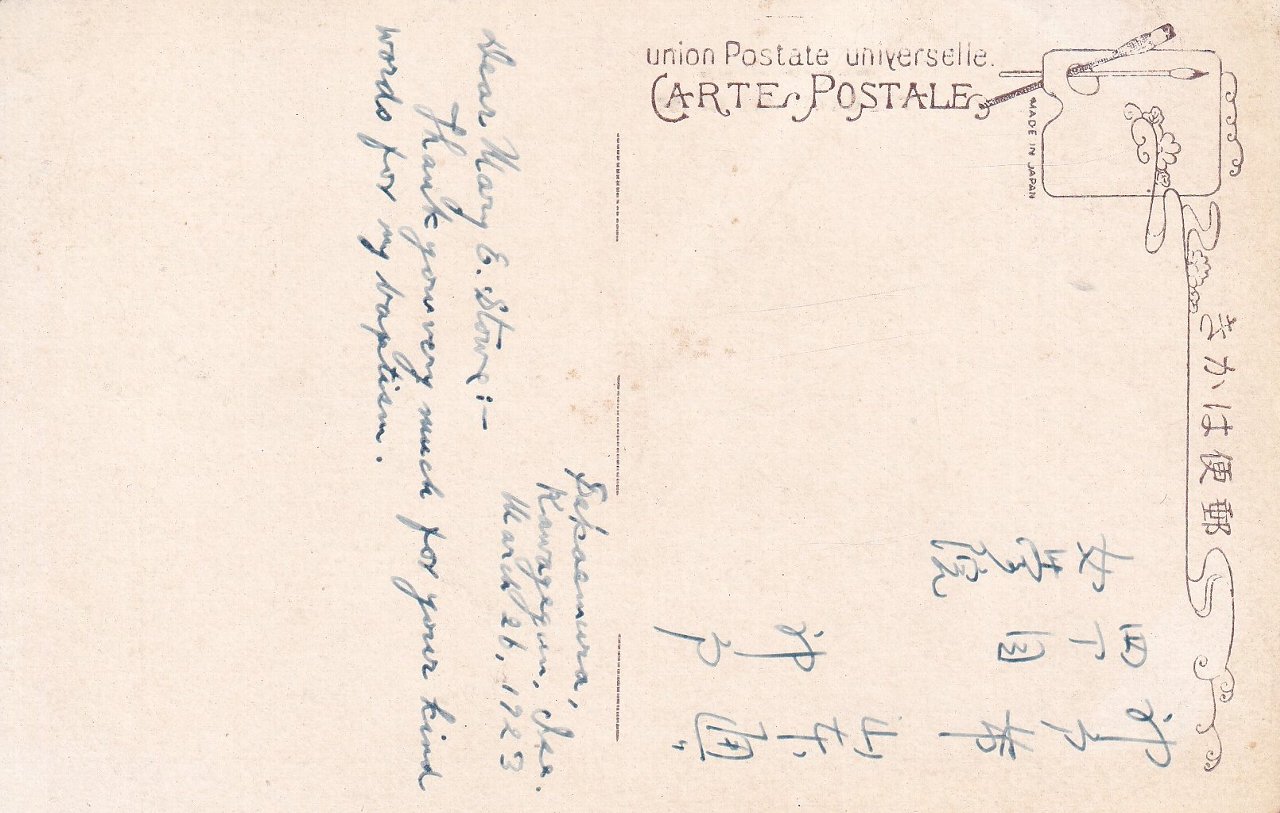 union Postate universelle.
CARTE POSTALE
MADE IN JAPAN
きかは便郵
神戸市山本通
四丁目 神戸
女学院
Kawagegun, Ise.
March 26, 1923
Dear Mary E. Stowe:-
Thank you very much for your kind
words for my baptism.